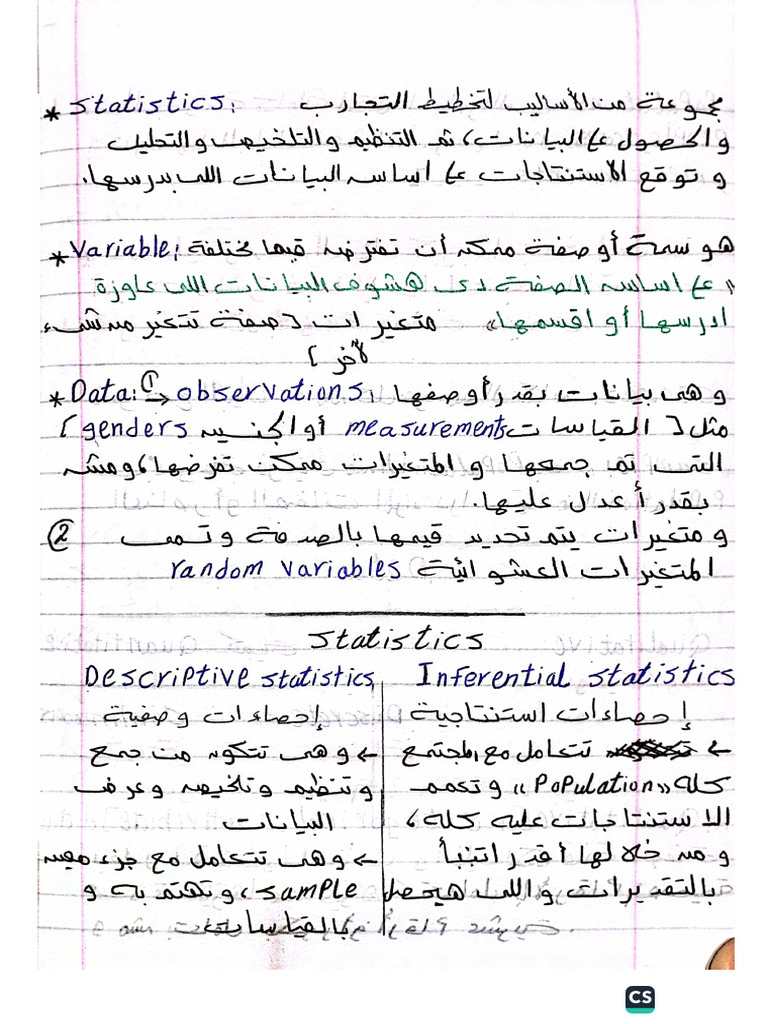 * Statistics: مجموعة من الأساليب لتخطيط التجارب
والحصول على البيانات، ثم التنظيم والتلخيص والتحليل
وتوقع الاستنتاجات ع أساس البيانات اللي بدرسها.
* Variable: هو سمة أو صفة ممكن أن تفترض قيما مختلفة
"ع أساس الصفة دي هشوف البيانات اللي عاوزة
ادرسها أو اقسمها" متغيرات [صفة تتغير من شيء
لآخر]
* Data: ① → observations: وهي بيانات بقدر أوصفها
مثل [القياسات measurements أو الجنس genders]
التي تم جمعها والمتغيرات ممكن تفرضها، ومش
بقدر أعدل عليها.
② ومتغيرات يتم تحديد قيمها بالصدفة وتسمى
المتغيرات العشوائية random variables
Statistics
Descriptive statistics
إحصاءات وصفية
← وهي تتكون من جمع
وتنظيم وتلخيص وعرض
البيانات
← وهي تتعامل مع جزء معين
sample، وتهتم به و
بالقياسات
Inferential statistics
إحصاءات استنتاجية
← تتعامل مع المجتمع
كله "Population" وتعمم
الاستنتاجات عليه كله،
ومن خلالها أقدر اتنبأ
بالتقديرات واللي هيحصل
CS